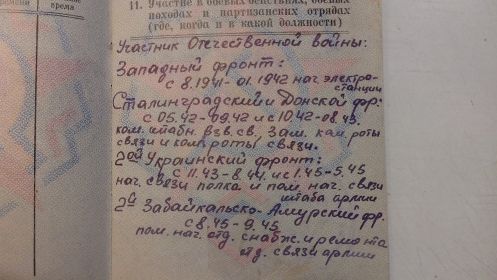 время
11. Участие в боевых действиях, боевых
походах и партизанских отрядах
(где, когда и в какой должности)
Участник Отечественной войны:
Западный фронт:
с 8.1941-01.1942 нач. электро-
станции
Сталинградский и Донской фр:
с 05.42-09.42 и с 10.42-08.43.
ком. штабн. взв. св. Зам. ком. роты
связи и ком. роты связи.
2ой Украинский фронт:
с 11.43-8.44. и с 1.45-5.45
нач. связи полка и пом. нач. связи
штаба армии
2й Забайкальско-Амурский фр.
с 8.45-9.45.
пом. нач. отд. снабж. и ремонта
отд. связи армии